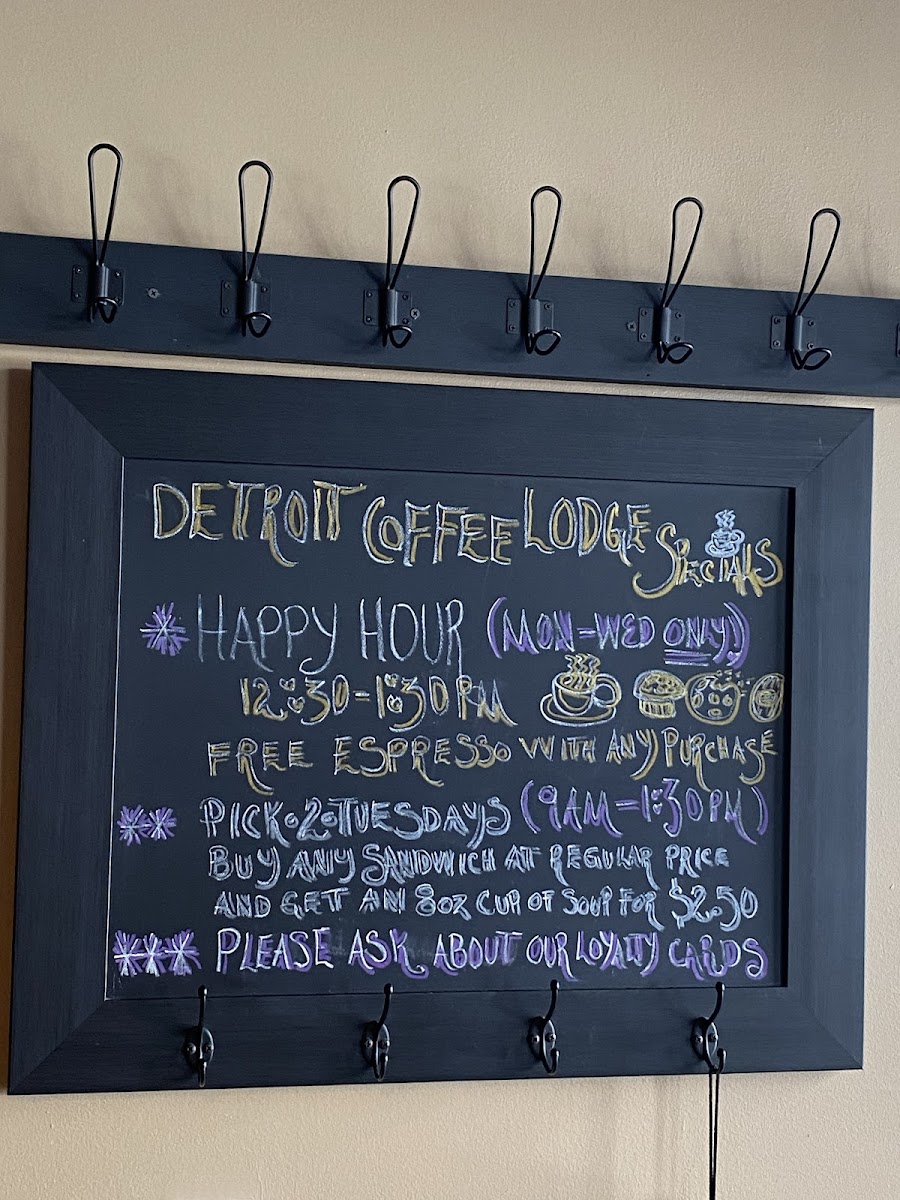 DETROIT COFFEE LODGE SPECIALS
* HAPPY HOUR (MON-WED ONLY!)
12:30-1:30PM
FREE ESPRESSO WITH ANY PURCHASE
** PICK·2·TUESDAYS (9AM-1:30PM)
BUY ANY SANDWICH AT REGULAR PRICE
AND GET AN 8OZ CUP OF SOUP FOR $2.50
*** PLEASE ASK ABOUT OUR LOYALTY CARDS